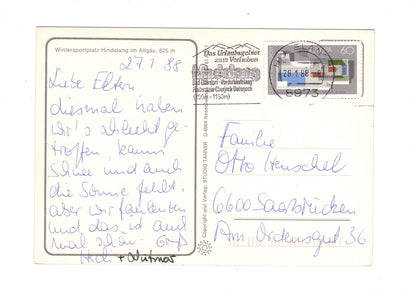 Wintersportplatz Hindelang im Allgäu, 825 m
27.1.88
Liebe Eltern
diesmal haben
wir's schlecht ge-
troffen, kaum
Schnee und auch
die Sonne fehlt,
aber wir faulenzen
und das ist auch
mal schön. Gruß
+ Dietmar
Copyright und Verlag: STUDIO TANNER
Das Urlaubsgebiet
zum Verlieben
Hindelang
28.1.88
8973
60
Familie
Otto Henschel
6600 Saarbrücken
Am Ordensgut 36